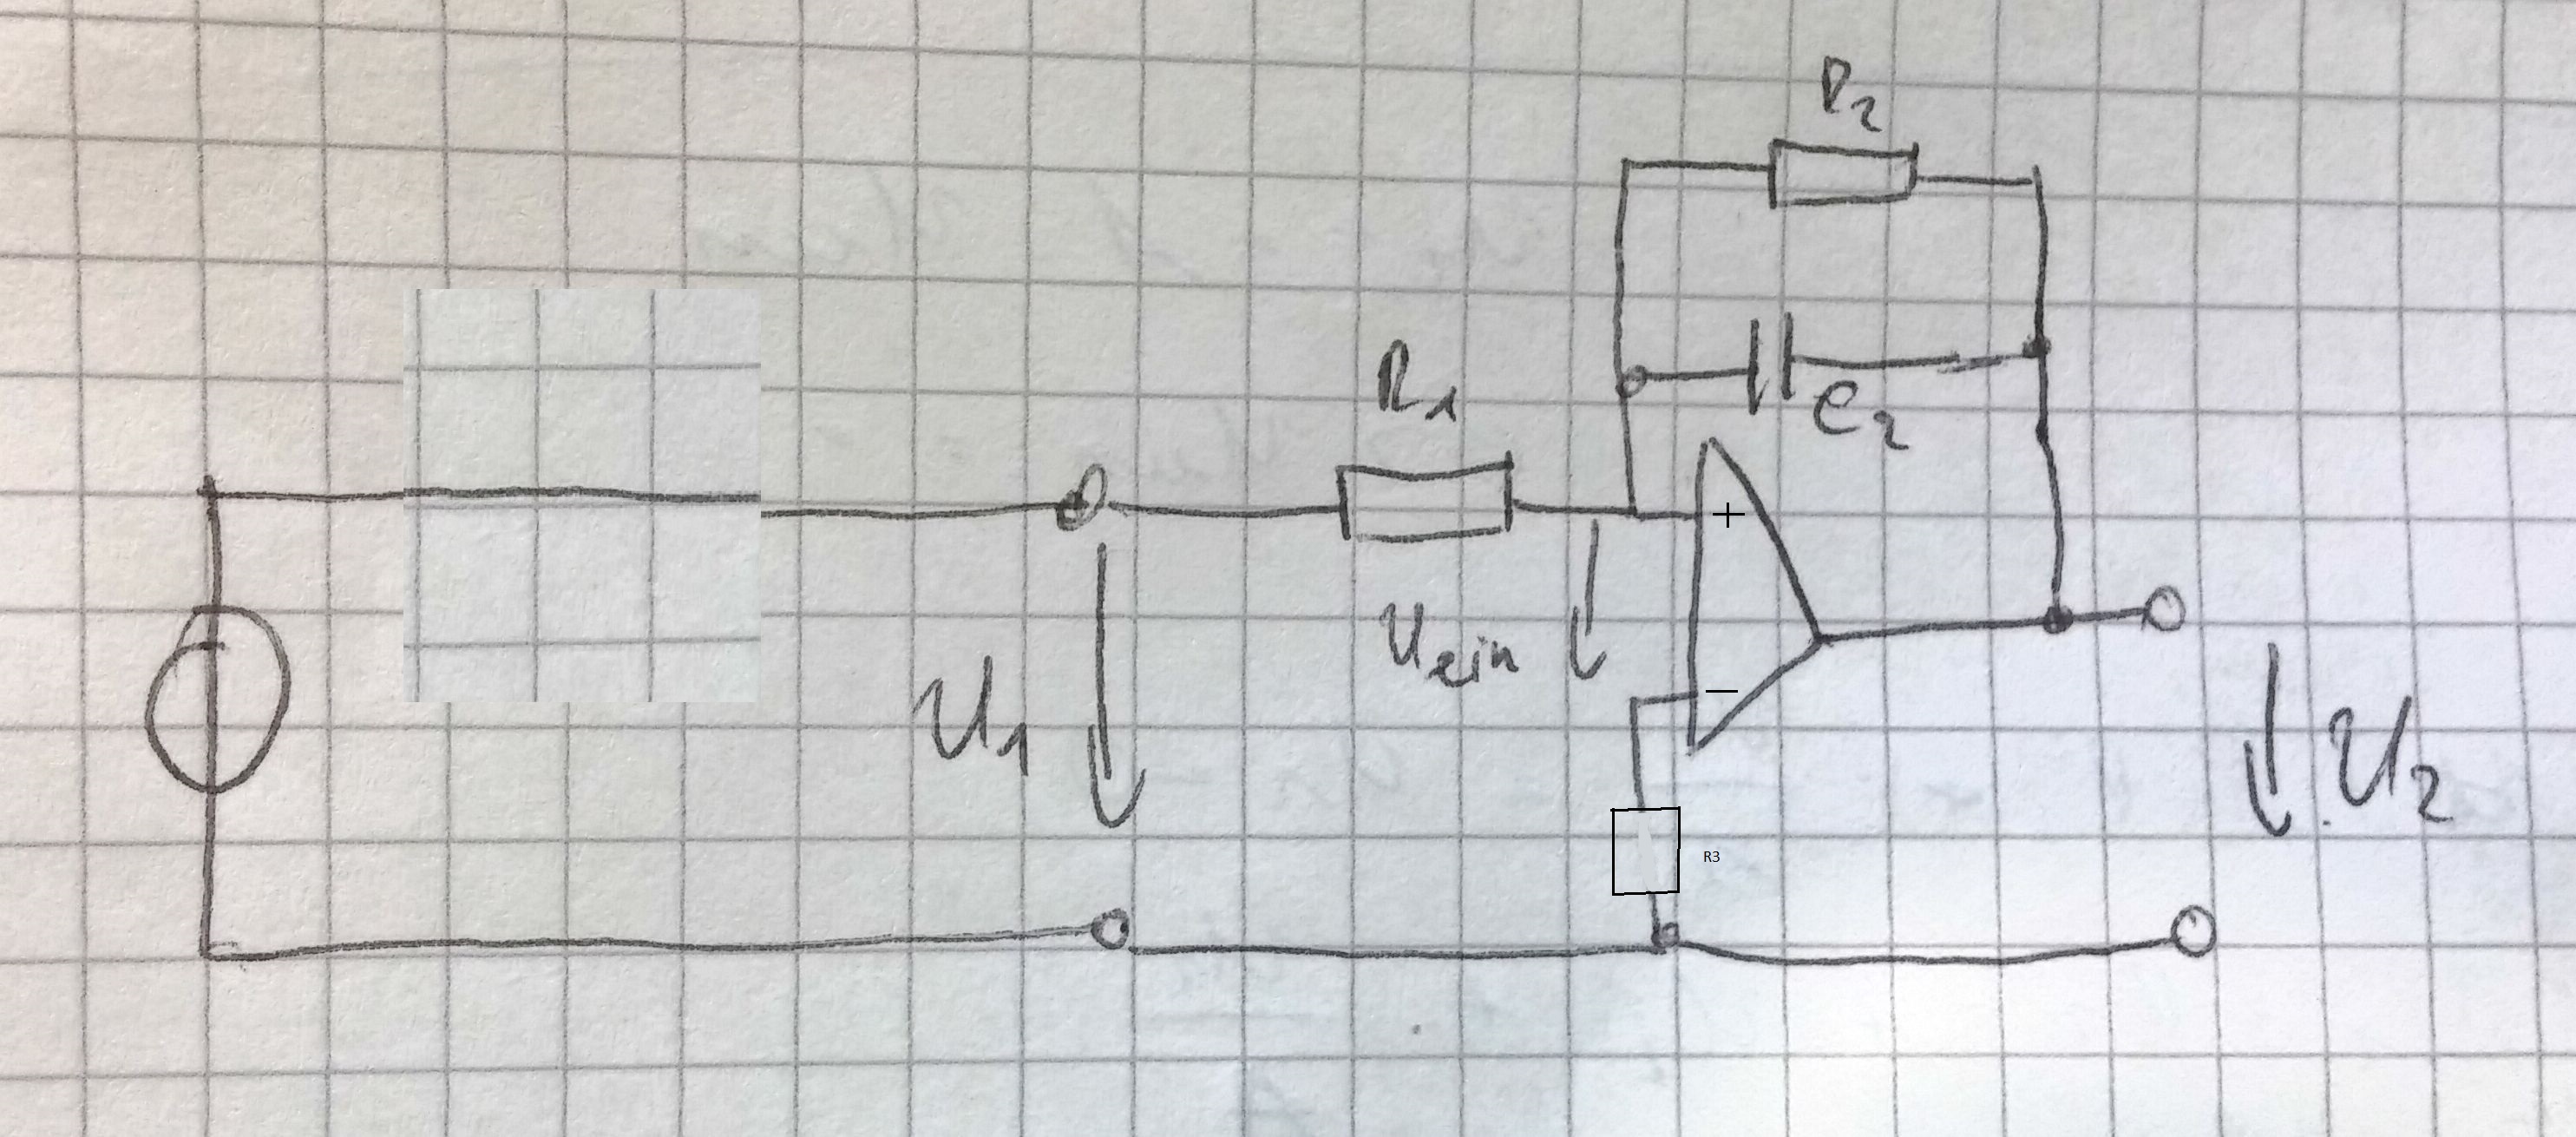 R2
C2
R1
+
Uein
−
U1
U2
R3